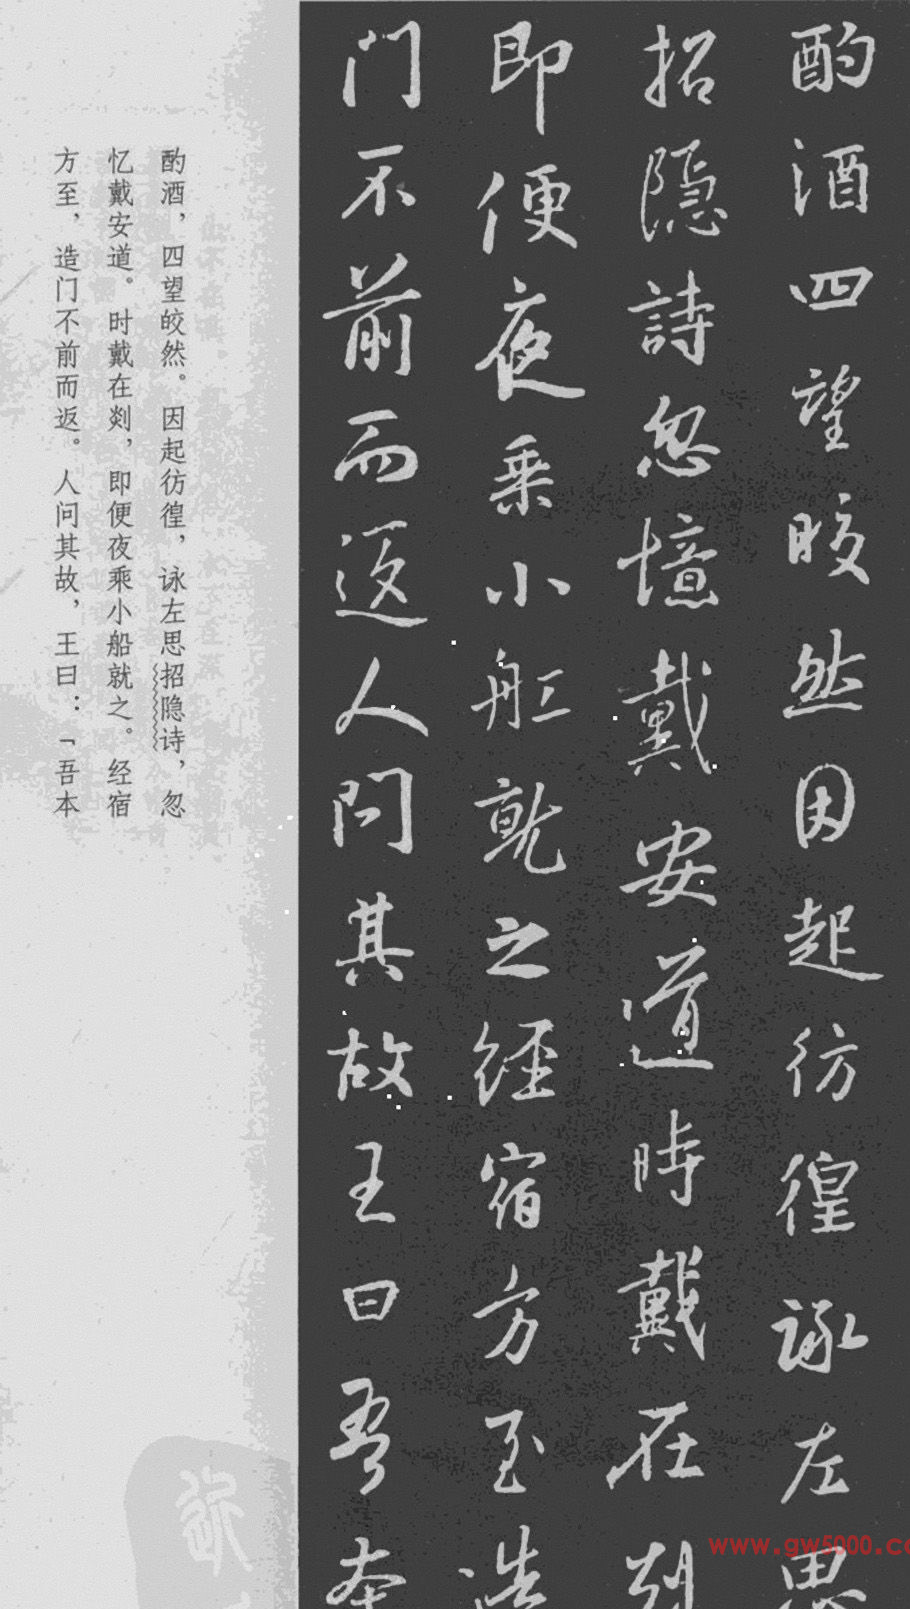 酌酒四望晈然因起彷徨詠左思
招隐詩忽憶戴安道時戴在剡
即便夜乘小舡就之經宿方至造
门不前而返人问其故王曰吾本
酌酒，四望皎然。因起彷徨，咏左思招隐诗，忽
忆戴安道。时戴在剡，即便夜乘小船就之。经宿
方至，造门不前而返。人问其故，王曰：「吾本
www.gw5000.co